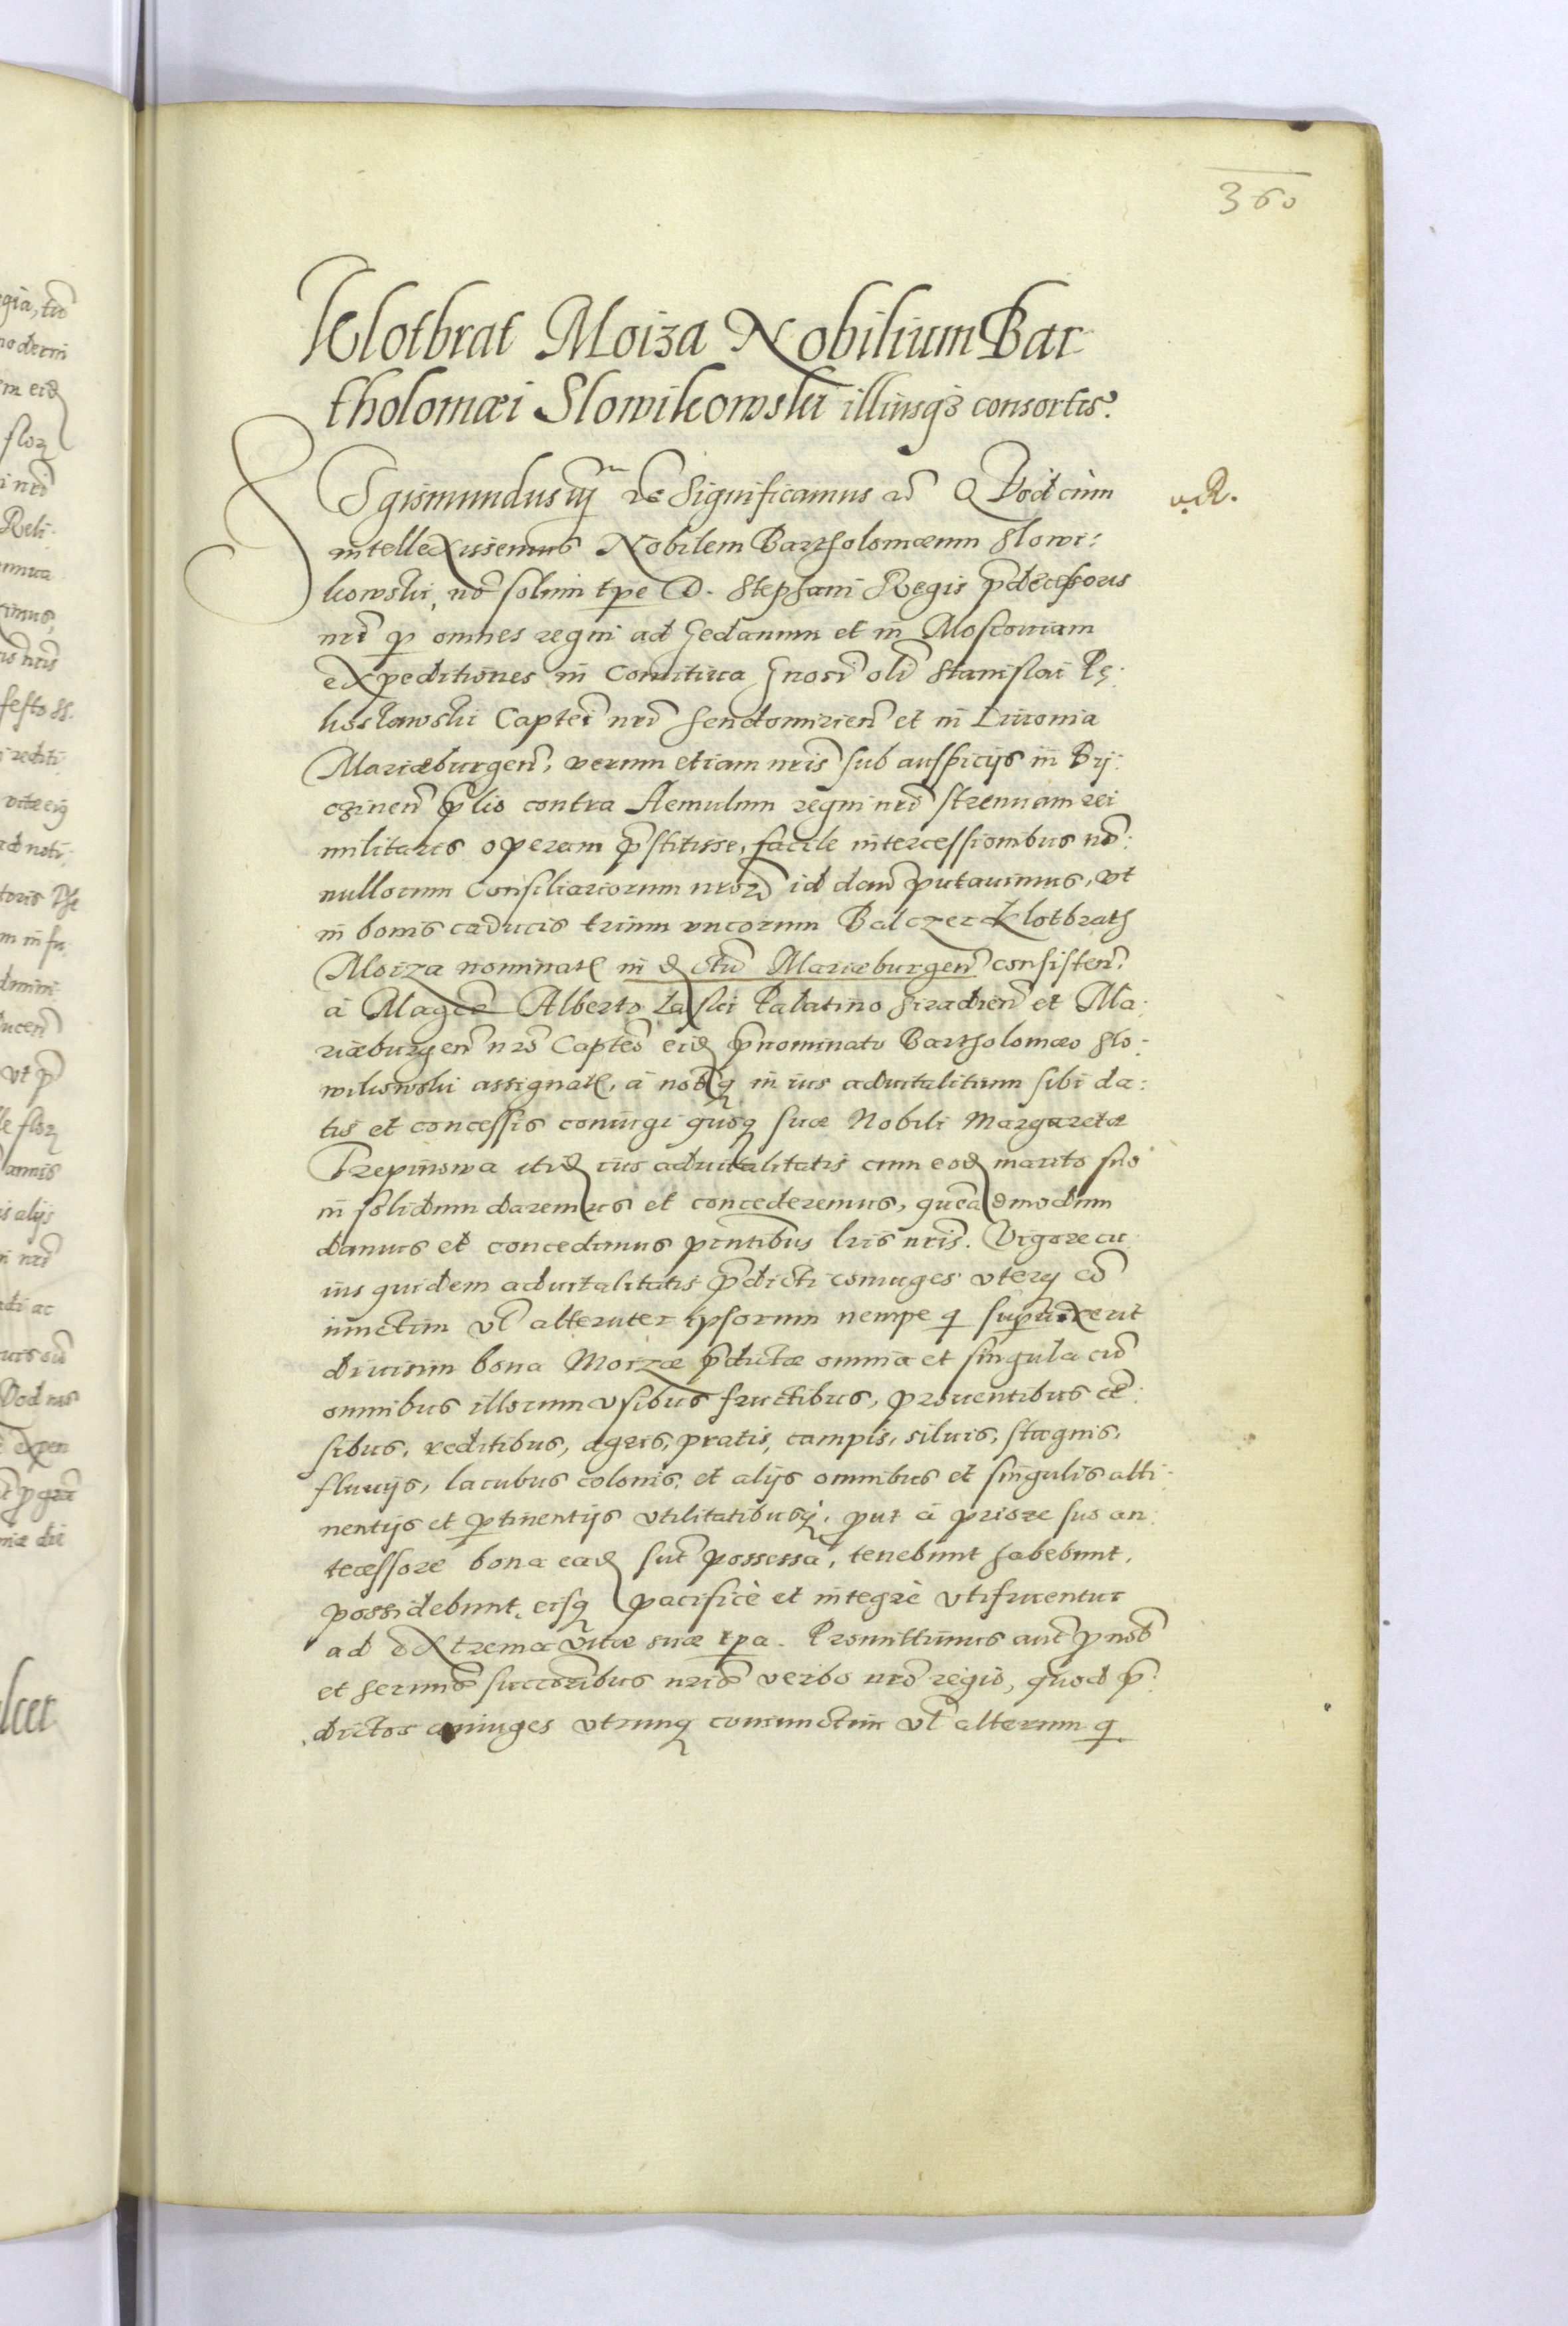 360
Klotbrat Moiza Nobilium Bar
tholomæi Slowikowski illiusqз consortis.
Sgismundus iij etc Significamus etc QVod cùm
u. R.
intellexissemus Nobilem Bartholomæum Slowi:
kowski, nō solum tpe D. Stephani Regis p̄decessoris
nrī ꝑ omnes regni ad Gedanum et in Moscouiam
expeditiones in Comitiua Gnosī olī Stanislai Pę:
koslawski Captei nrī Sendomirień et in Liuonia
Mariæburgeń, verum etiam nrīs sub auspicijs in Bij:
czineń p̄lio contra Aemulum regni nrī strenuam rei
militaris operam p̄stitisse, facile intercessionibus nō:
nullorum Consiliariorum nrōꝝ id dań putauimus, vt
in bonis caducis trium vncorum Balczer Klotbrath
Moiza nominatꝭ in dctū Mariæburgeń consisteń,
à Magco Alberto Laski Palatino Siradień et Ma:
riæburgeń nrō Capteō eid p̄nominato Bartholomæo Slo:
wikowski assignatꝭ, à nobqꝫ in ius aduitalitium sibi da:
tis et concessis coniugi quoqꝫ suæ Nobili Margaretæ
Trepinowa itid ius aduitalitatis cum eod marito suo
in solidum daremus et concederemus, queādmodum
damus et concedimus pn̄tibus lrīs nrīs. Vigore cu
ius quidem aduitalitatis p̄dicti coniuges vterqꝫ cō
iunctim vl̄ alteruter ipsorum nempe q suꝑuixerit
diuisim bona Moizæ p̄dictæ omnia et singula cū
omnibus illorum vsibus fructibus, prouentibus cē:
sibus, reditibus, agris, pratis, campis, siluis, stagnis,
fluuijs, lacubus colonis, et alijs omnibus et singulis atti:
nentijs et ꝑtinentijs vtilitatibusqꝫ, ꝓut à priore suo an:
tecessore bona ead sut possessa, tenebunt habebunt,
possidebunt, eisqꝫ pacificè et integrè vtifruentur
ad extrema vitæ suæ tpa. Promittimus aut̄ ꝓ nob
et serīmis succōribus nrīs verbo nrō regio, quod p̄:
dictos coniuges vtrunqꝫ coniunctim vl̄ alterum q